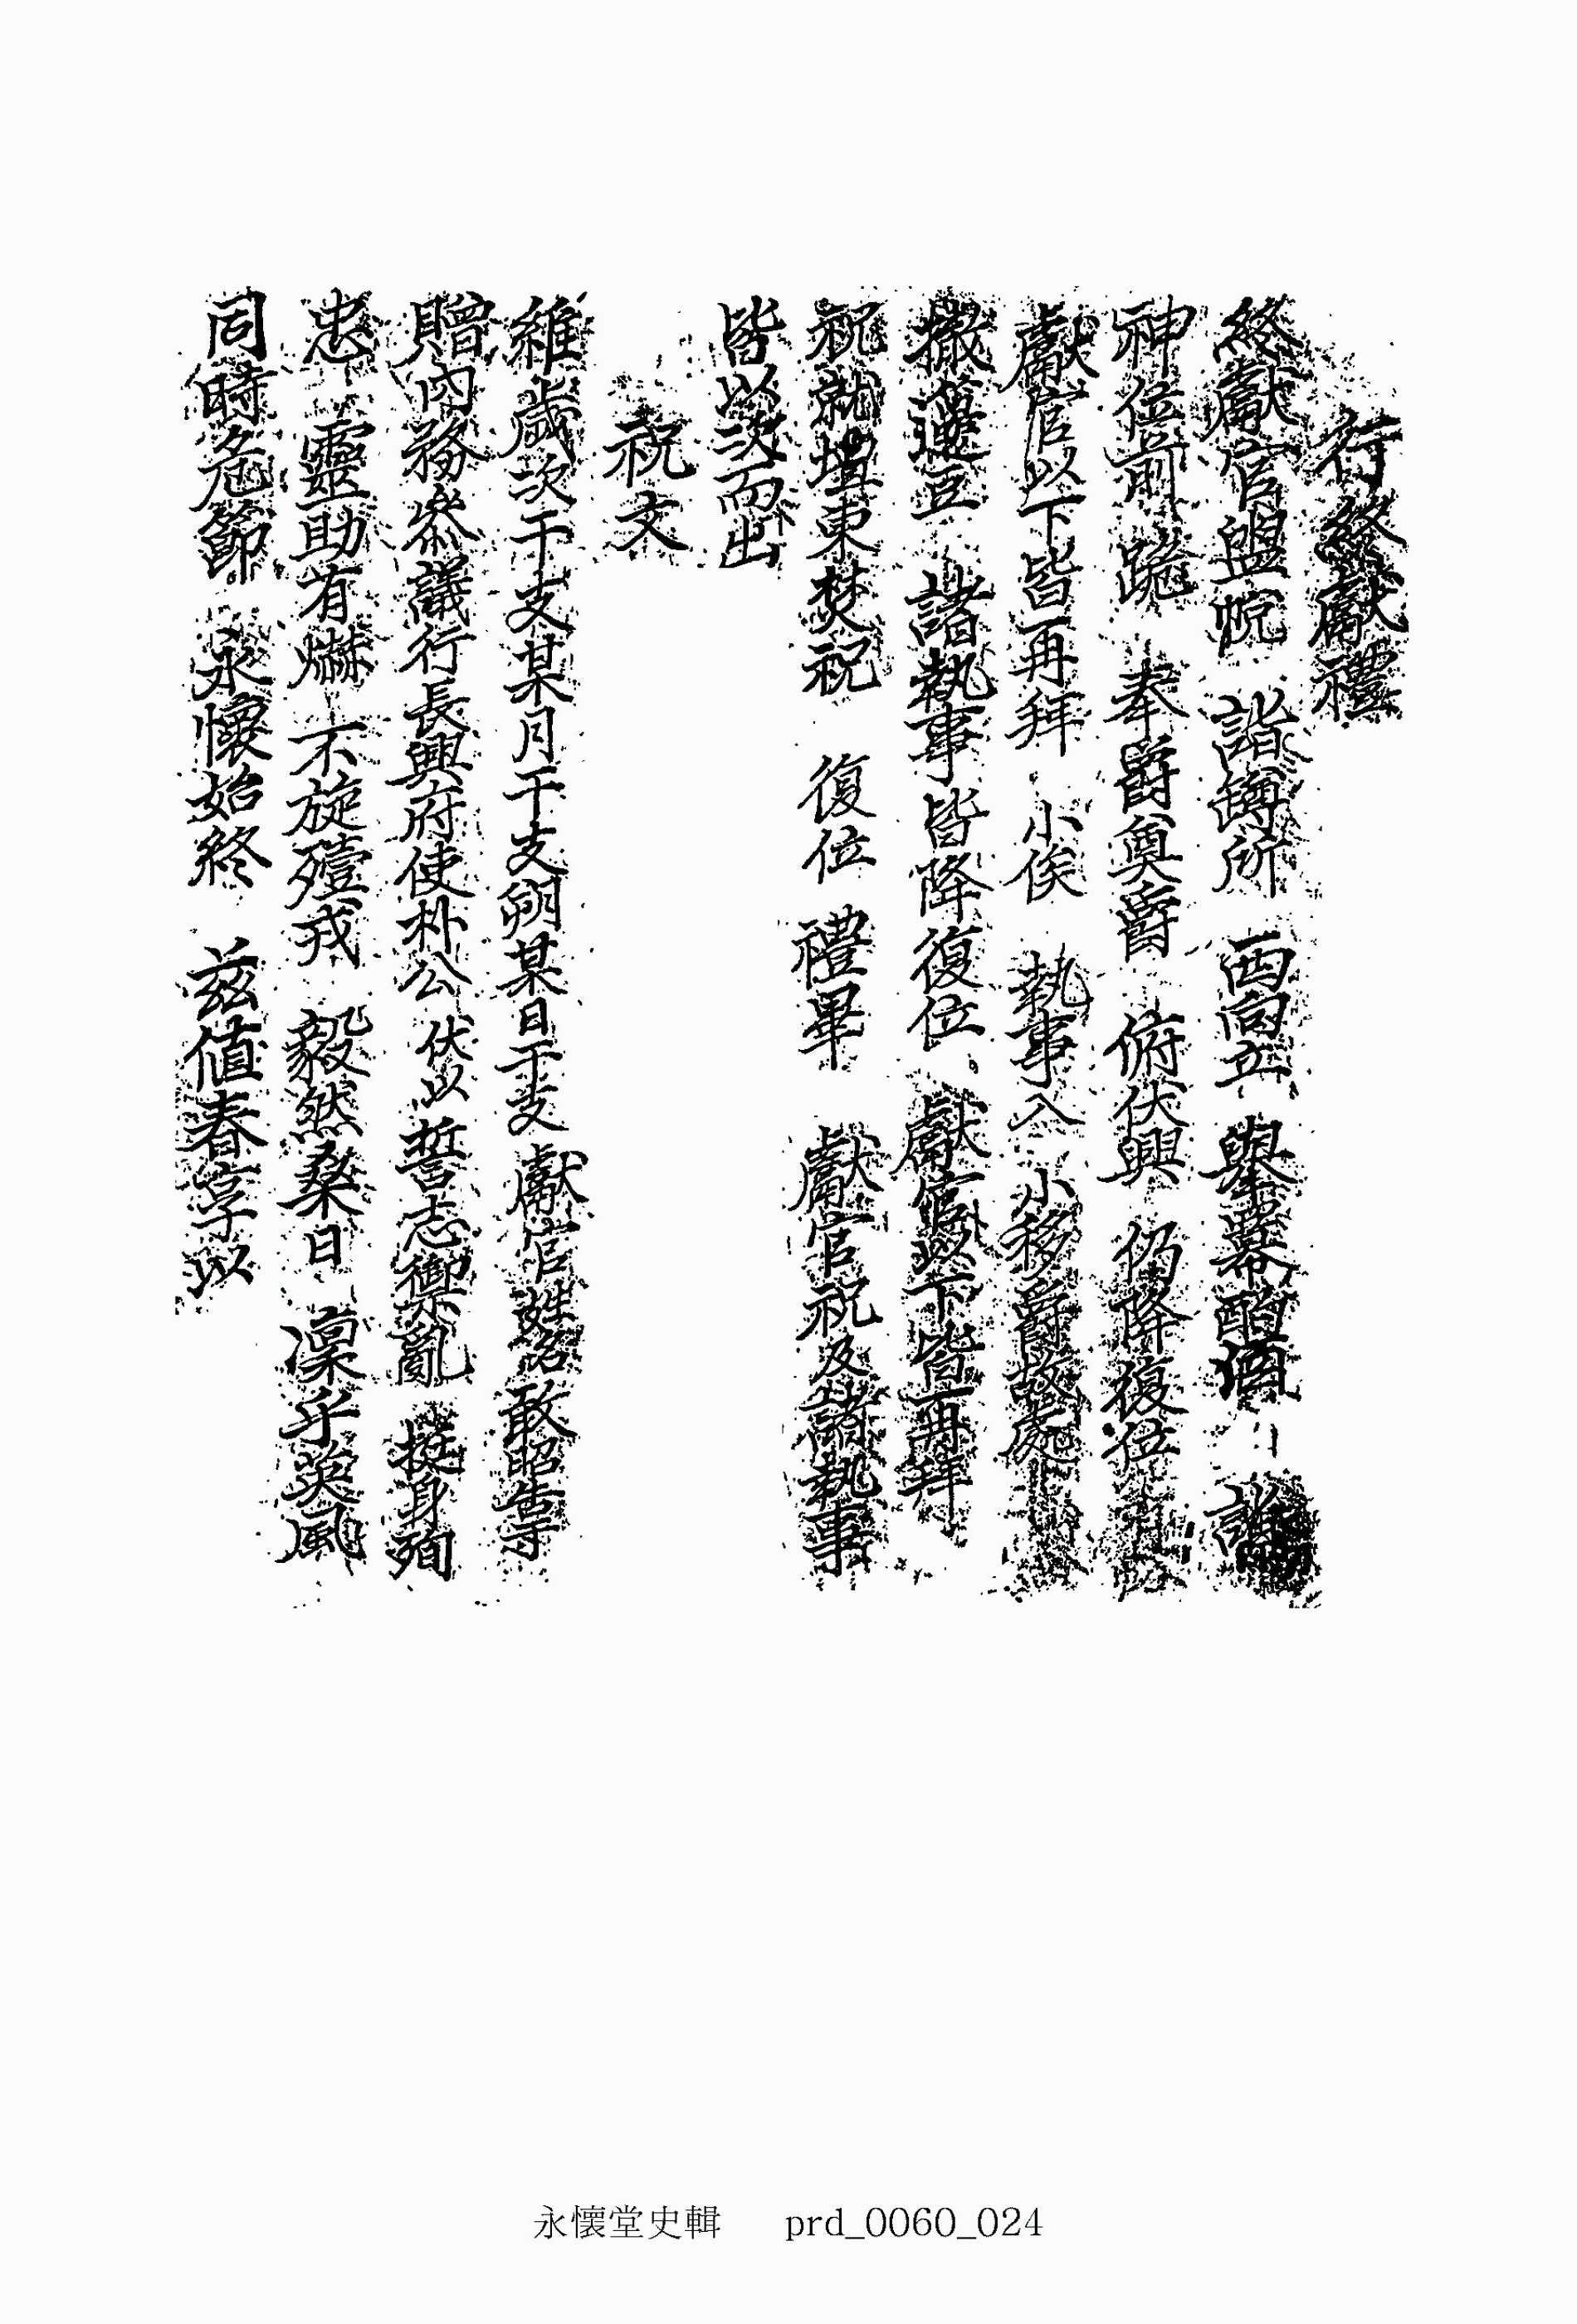 行終獻禮
終獻官盥帨 詣罇所 西向立 擧冪酌酒 詣
神位前 跪 奉爵奠爵 俯伏興 仍降復位
獻官以下皆再拜 小俟 執事入 小移爵故處
撤籩豆 諸執事皆降復位 獻官以下皆再拜
祝就壇東焚祝 復位 禮畢 獻官祝及諸執事
皆以次而出
祝文
維歲次干支某月干支朔某日干支 獻官姓名敢昭告于
贈內務參議行長興府使朴公 伏以 誓志禦亂 挺身殉
忠 靈助有爀 不旋殪戎 毅然桑日 凜乎英風
同時危節 永懷始終 兹値春享以
永懷堂史輯 prd_0060_024